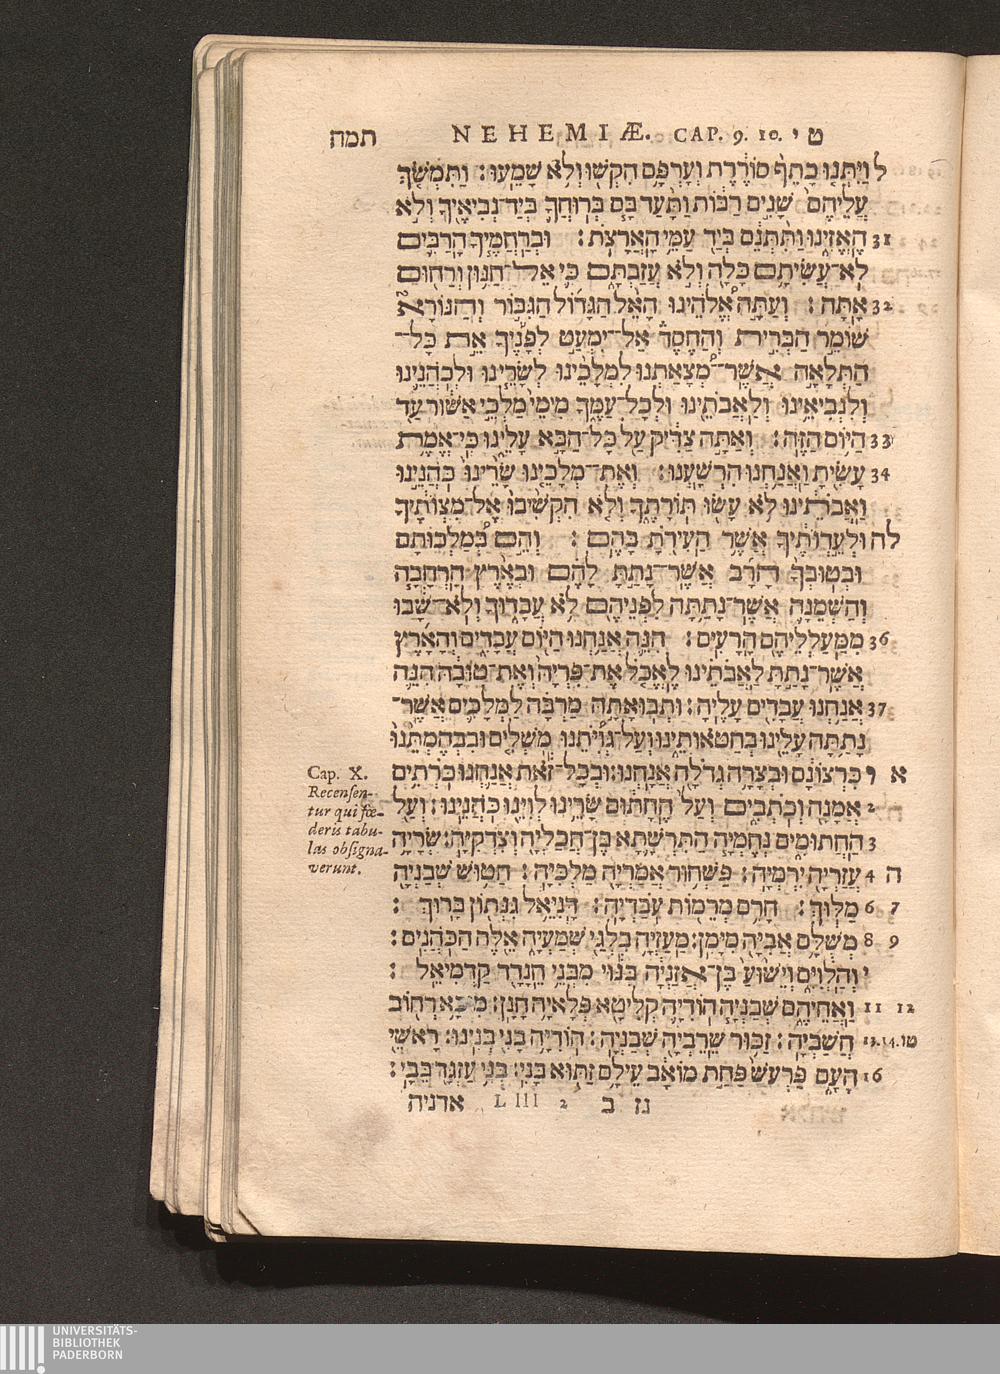 תמח NEHEMIÆ. CAP. 9. 10. ט י
ל וַיִּתְּנוּ כָתֵף סוֹרֶרֶת וְעָרְפָּם הִקְשׁוּ וְלֹא שָׁמֵעוּ׃ וַתִּמְשֹׁךְ
עֲלֵיהֶם שָׁנִים רַבּוֹת וַתָּעַד בָּם בְּרוּחֲךָ בְּיַד־נְבִיאֶיךָ וְלֹא
31 הֶאֱזִינוּ וַתִּתְּנֵם בְּיַד עַמֵּי הָאֲרָצֹת׃ וּבְרַחֲמֶיךָ הָרַבִּים
לֹא־עֲשִׂיתָם כָּלָה וְלֹא עֲזַבְתָּם כִּי אֵל־חַנּוּן וְרַחוּם
32 אָתָּה׃ וְעַתָּה אֱלֹהֵינוּ הָאֵל הַגָּדוֹל הַגִּבּוֹר וְהַנּוֹרָא
שׁוֹמֵר הַבְּרִית וְהַחֶסֶד אַל־יִמְעַט לְפָנֶיךָ אֵת כָּל־
הַתְּלָאָה אֲשֶׁר־מְצָאַתְנוּ לִמְלָכֵינוּ לְשָׂרֵינוּ וּלְכֹהֲנֵינוּ
וְלִנְבִיאֵינוּ וְלַאֲבֹתֵינוּ וּלְכָל־עַמֶּךָ מִימֵי מַלְכֵי אַשּׁוּר עַד
33 הַיּוֹם הַזֶּה׃ וְאַתָּה צַדִּיק עַל כָּל־הַבָּא עָלֵינוּ כִּי־אֱמֶת
34 עָשִׂיתָ וַאֲנַחְנוּ הִרְשָׁעְנוּ׃ וְאֶת־מְלָכֵינוּ שָׂרֵינוּ כֹּהֲנֵינוּ
וַאֲבֹתֵינוּ לֹא עָשׂוּ תּוֹרָתֶךָ וְלֹא הִקְשִׁיבוּ אֶל־מִצְוֹתֶיךָ
לה וּלְעֵדְוֹתֶיךָ אֲשֶׁר הַעִידֹתָ בָּהֶם׃ וְהֵם בְּמַלְכוּתָם
וּבְטוּבְךָ הָרָב אֲשֶׁר־נָתַתָּ לָהֶם וּבְאֶרֶץ הָרְחָבָה
וְהַשְּׁמֵנָה אֲשֶׁר־נָתַתָּה לִפְנֵיהֶם לֹא עֲבָדוּךָ וְלֹא־שָׁבוּ
36 מִמַּעַלְלֵיהֶם הָרָעִים׃ הִנֵּה אֲנַחְנוּ הַיּוֹם עֲבָדִים וְהָאָרֶץ
אֲשֶׁר־נָתַתָּ לַאֲבֹתֵינוּ לֶאֱכֹל אֶת־פִּרְיָהּ וְאֶת־טוּבָהּ הִנֵּה
37 אֲנַחְנוּ עֲבָדִים עָלֶיהָ׃ וּתְבוּאָתָהּ מַרְבָּה לַמְּלָכִים אֲשֶׁר־
נָתַתָּה עָלֵינוּ בְּחַטֹּאותֵינוּ וְעַל גְּוִיֹּתֵנוּ מֹשְׁלִים וּבִבְהֶמְתֵּנוּ
א י כִּרְצוֹנָם וּבְצָרָה גְדֹלָה אֲנָחְנוּ׃ וּבְכָל־זֹאת אֲנַחְנוּ כֹּרְתִים
2 אֲמָנָה וְכֹתְבִים וְעַל הֶחָתוּם שָׂרֵינוּ לְוִיֵּנוּ כֹּהֲנֵינוּ׃ וְעַל
3 הַחֲתוּמִים נְחֶמְיָה הַתִּרְשָׁתָא בֶּן־חֲכַלְיָה וְצִדְקִיָּה׃ שְׂרָיָה
ה 4 עֲזַרְיָה יִרְמְיָה׃ פַּשְׁחוּר אֲמַרְיָה מַלְכִּיָּה׃ חַטּוּשׁ שְׁבַנְיָה
7 6 מַלּוּךְ׃ חָרִם מְרֵמוֹת עֹבַדְיָה׃ דָּנִיֵּאל גִּנְּתוֹן בָּרוּךְ׃
9 8 מְשֻׁלָּם אֲבִיָּה מִיָּמִן׃ מַעַזְיָה בִלְגַּי שְׁמַעְיָה אֵלֶּה הַכֹּהֲנִים׃
י וְהַלְוִיִּם וְיֵשׁוּעַ בֶּן־אֲזַנְיָה בִּנּוּי מִבְּנֵי חֵנָדָד קַדְמִיאֵל׃
12 11 וַאֲחֵיהֶם שְׁבַנְיָה הוֹדִיָּה קְלִיטָא פְּלָאיָה חָנָן׃ מִיכָא רְחוֹב
13.14.טו חֲשַׁבְיָה׃ זַכּוּר שֵׁרֵבְיָה שְׁבַנְיָה׃ הוֹדִיָּה בָנִי בְּנִינוּ׃ רָאשֵׁי
16 הָעָם פַּרְעֹשׁ פַּחַת מוֹאָב עֵילָם זַתּוּא בָּנִי׃ בֻּנִּי עַזְגָּד בֵּבָי׃
אדניה Llll 2 נז ב
Cap. X.
Recensen-
tur qui fœ-
deris tabu-
las obsigna-
verunt.
UNIVERSITÄTS-
BIBLIOTHEK
PADERBORN